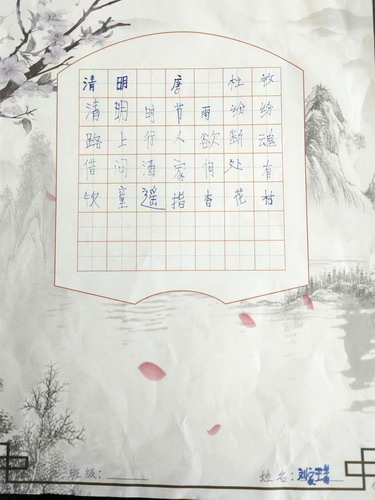 清明 唐 杜牧
清明时节雨纷纷
路上行人欲断魂
借问酒家何处有
牧童遥指杏花村
班级:
姓名:刘